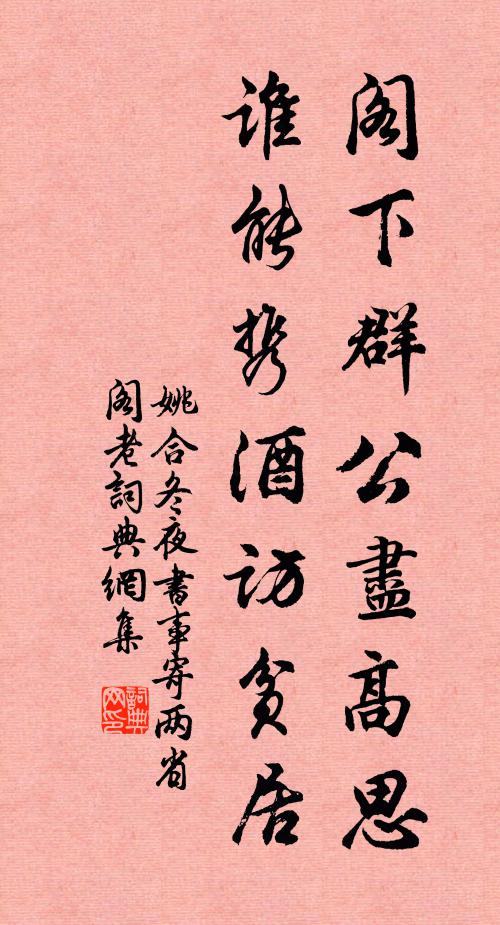 阁下群公盡高思
谁能携酒访贫居
姚合冬夜書事寄两省
阁老詞典網集
詞典网印